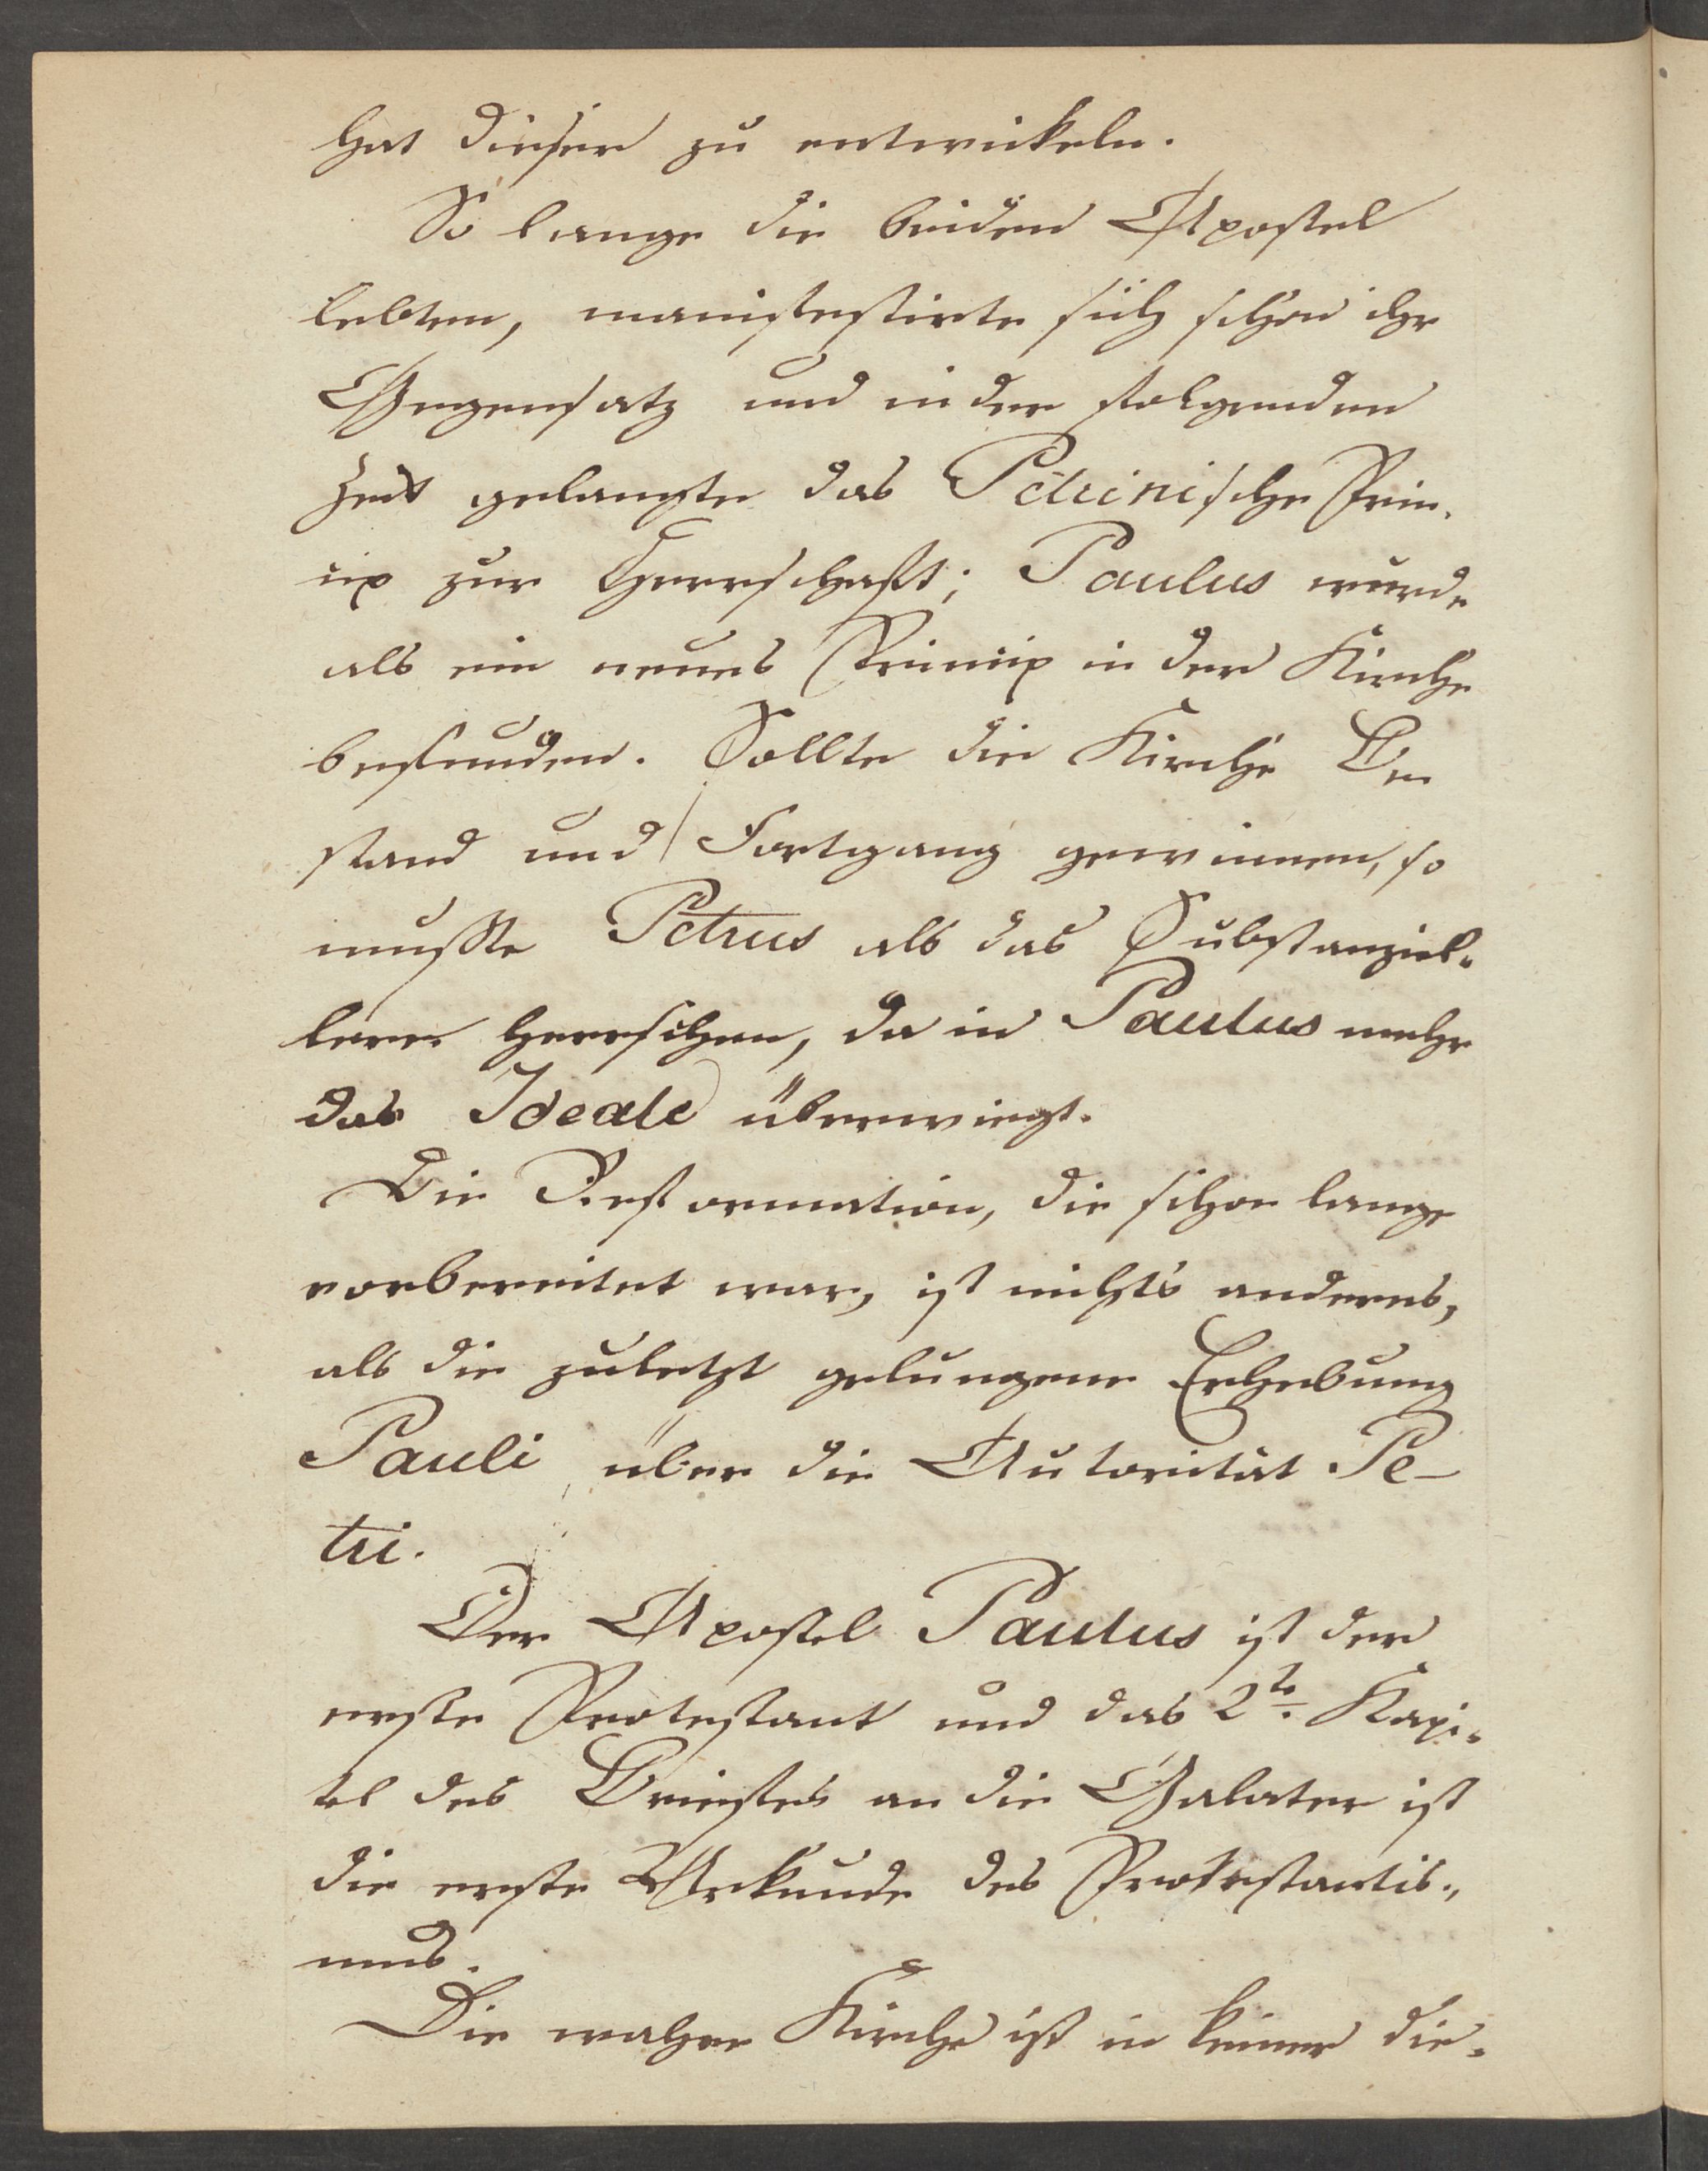 hat dieser zu entwickeln.
So lange die beiden Apostel
lebten, manifestirte sich schon ihr
Gegensatz und in der folgenden
Zeit gelangte das Petrinische Prin-
cip zur Herrschaft; Paulus wurde
als ein neues Princip in der Kirche
befunden. Sollte die Kirche Be
stand und Fortgang gewinnen, so
mußte Petrus als das Substanziel-
lere herrschen, da in Paulus mehr
das Ideale überwiegt.
Die Reformation, die schon lange
vorbereitet war, ist nichts anderes,
als die zuletzt gelungene Erhebung
Pauli über die Autorität Pe-
tri.
Der Apostel Paulus ist der
erste Protestant und das 2te. Kapi-
tel des Briefes an die Galater ist
die erste Urkunde des Protestantis-
mus.
Die wahre Kirche ist in keiner die-